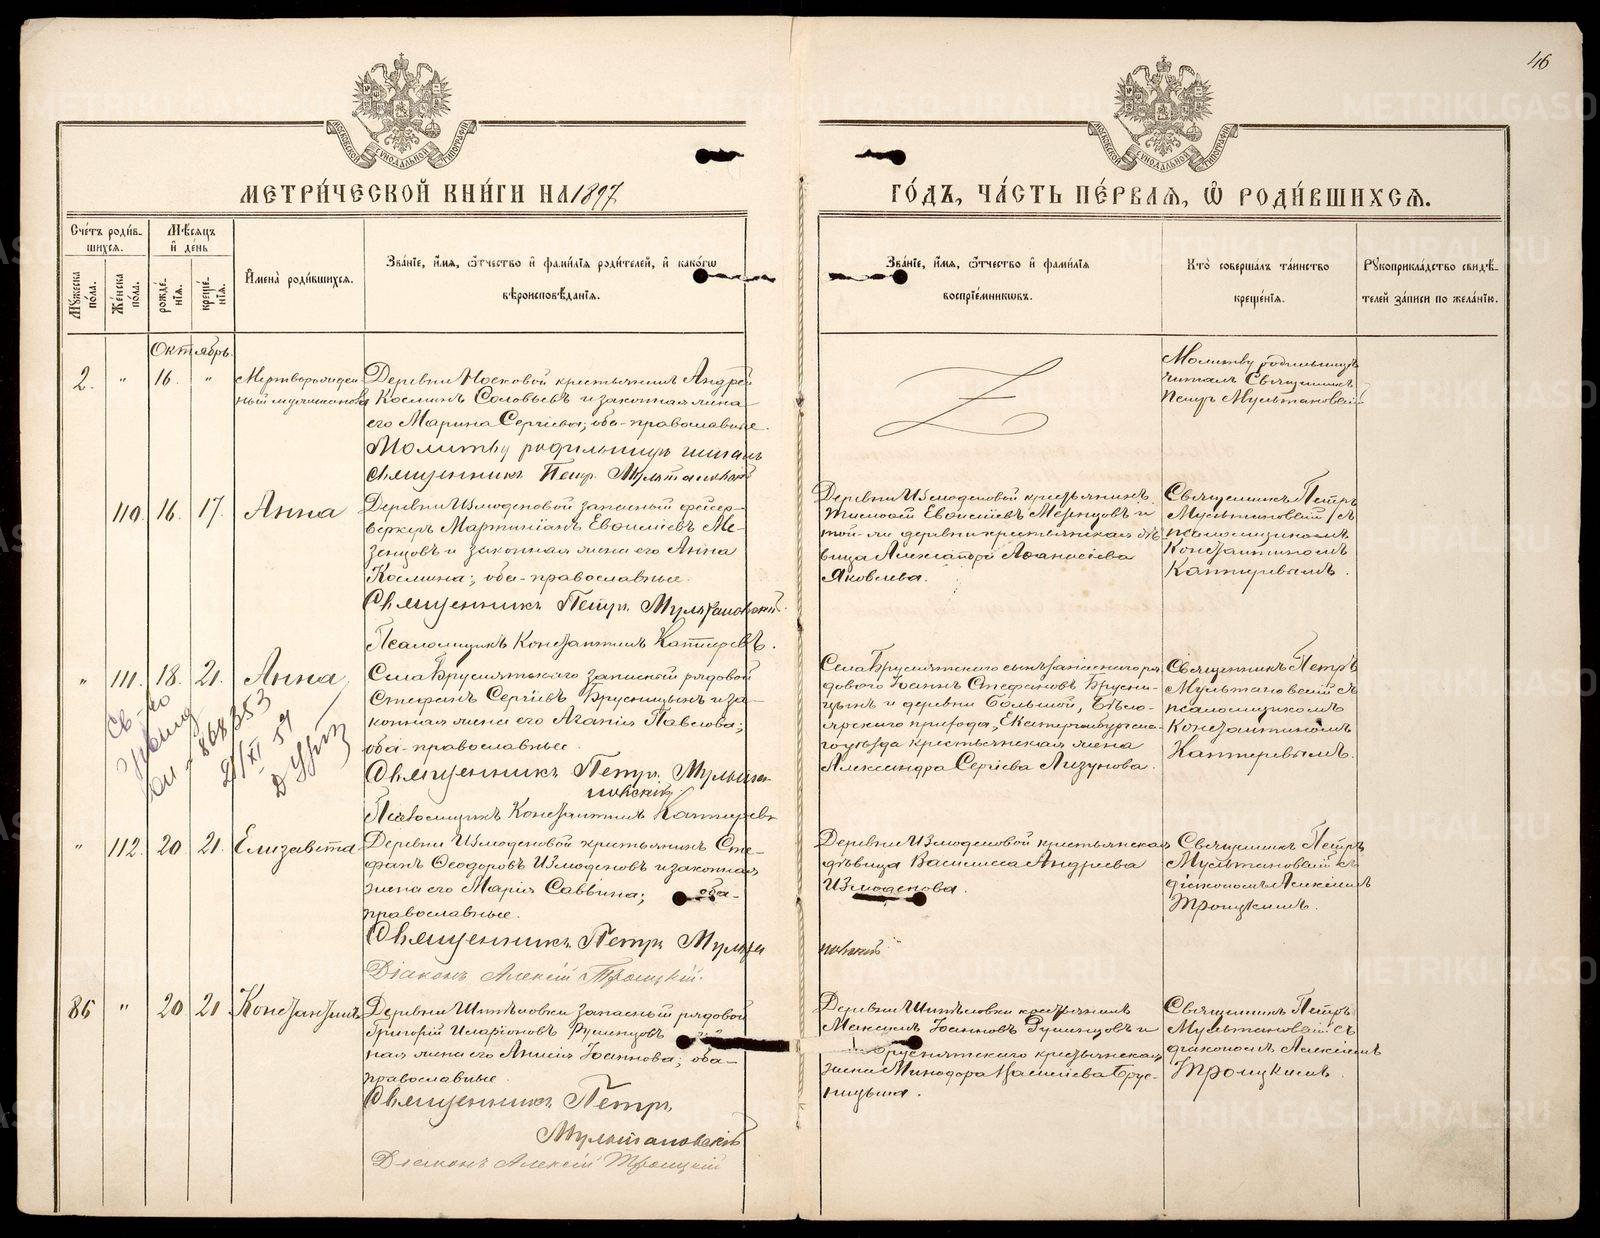 46
МОСКОВСКОЙ СѴНОДАЛЬНОЙ ТИПОГРАФІИ
МОСКОВСКОЙ СѴНОДАЛЬНОЙ ТИПОГРАФІИ
МЕТРИ́ЧЕСКОЙ КНИ́ГИ НА 1897
ГО́ДЪ, ЧА́СТЬ ПЕ́РВАѦ, Ѿ РОДИ́ВШИХСѦ.
Сче́тъ роди́в-
шихся.
Мѣ́сяцъ
и де́нь
Му́жеска по́ла.
Же́нска по́ла.
рожде́-
нія.
креще́-
нія.
Имена̀ роди́вшихся.
Зва́ніе, и́мя, ѻ́тчество и фами́лія роди́телей, и како́гѡ
вѣроисповѣ́данія.
Зва́ніе, и́мя, ѻ́тчество и фами́лія
воспріе́мниковъ.
Кто̀ соверша́лъ та́инство
креще́нія.
Рукоприкла́дство свидѣ́-
телей за́писи по жела́нію.
Октябрь.
2. " 16. " Мертворожден-
ный
Деревни Носковой крестьянинъ Андрей
Косминъ Соловьевъ и законная жена
его Марина Сергіева; оба православные.
Молитву родильницѣ читалъ
Священникъ Петръ Мультановскій
Молитву родильницѣ
читалъ Священникъ
Петръ Мультановскій
110. 16. 17. Анна
Деревни Измоденовой запасный фейер-
веркеръ Мартиніанъ Евсиліевъ Ме-
зенцовъ и законная жена его Анна
Космина; оба православные.
Священникъ Петръ Мультановскій.
Псаломщикъ Константинъ Каттеревъ.
Деревни Измоденовой крестьянинъ
Евсиліевъ Мезенцовъ и
той-же деревни крестьянская дѣ-
вица Александра Афанасіева
Яковлева.
Священникъ Петръ
Мультановскій съ
псаломщикомъ
Константиномъ
Каттеревымъ.
" 111. 18. 21. Анна
Села Бруснятскаго запасной рядовой
Стефанъ Сергіевъ Брусницынъ и за-
конная жена его Агапія Павлова;
оба православные.
Священникъ Петръ Мульта-
новскій
Псаломщикъ Константинъ Каттеревъ
Села Бруснятскаго сынъ запаснаго ря-
дового Іоаннъ Стефановъ Брусни-
цынъ и деревни Большой, Бѣло-
ярскаго прихода, Екатеринбургска-
го уѣзда крестьянская жена
Александра Сергіева Лизунова.
Священникъ Петръ
Мультановскій съ
псаломщикомъ
Константиномъ
Каттеревымъ.
Св-во
868353
21/XI 59
" 112. 20 21. Елизавета
Деревни Измоденовой крестьянинъ Сте-
фанъ Ѳеодоровъ Измоденовъ и законная
жена его Марія Саввина; оба
православные.
Священникъ Петръ Мульта
новскій
Діаконъ Алексій Троицкій.
Деревни Измоденовой крестьянская
дѣвица Василисса Андреева
Измоденова.
Священникъ Петръ
Мультановскій съ
діакономъ Алексіемъ
Троицкимъ.
86 " 20 21 Константинъ
Деревни Шипѣловки запасный рядовой
Григорій Иларіоновъ Румянцовъ
ная жена его Анисія Іоаннова; оба
православные.
Священникъ Петръ
Мультановскій
Діаконъ Алексій Троицкій
Деревни Шипѣловки крестьянинъ
Максимъ Іоанновъ Румянцовъ и
Бруснятскаго крестьянская
жена Минодора Василіева Брус-
ницына.
Священникъ Петръ
Мультановскій съ
діакономъ Алексіемъ
Троицкимъ.
METRIKI.GASO-URAL.RU